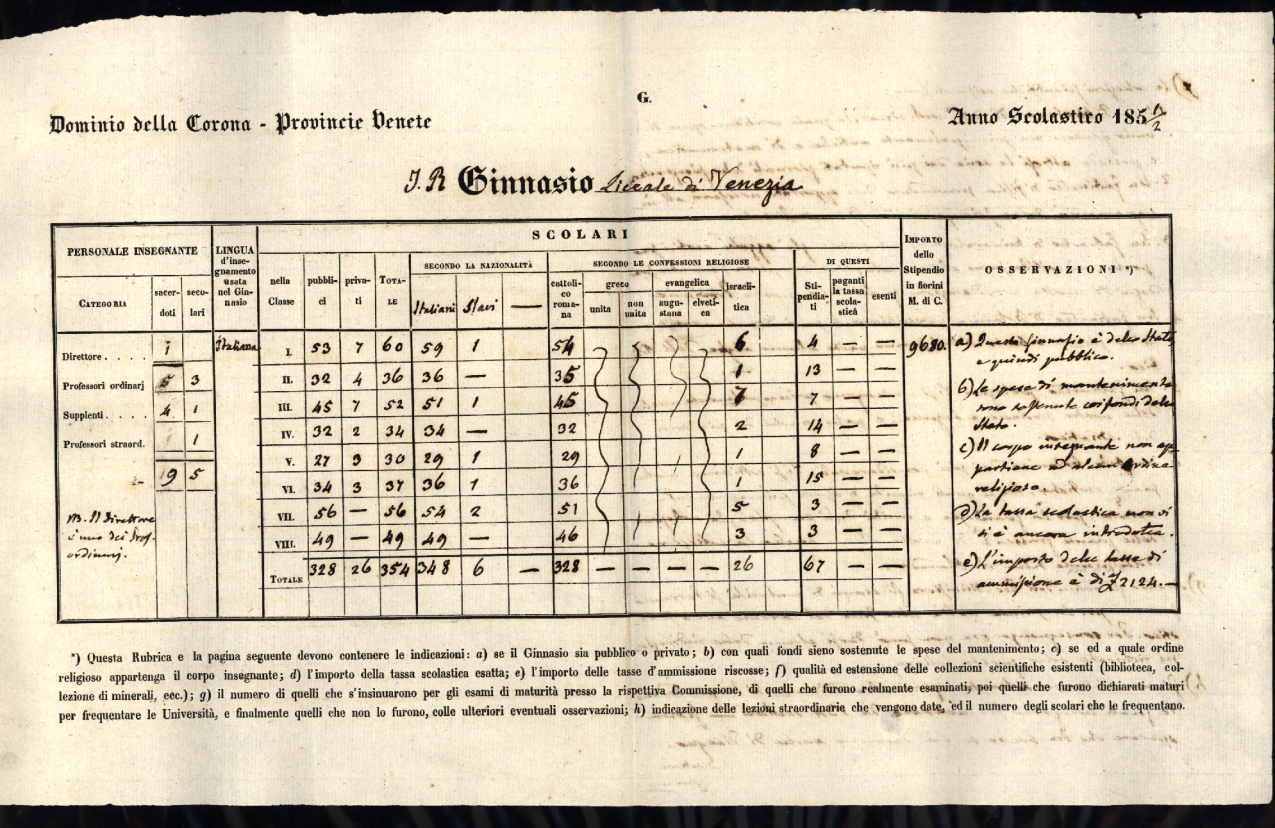 G.
Dominio della Corona - Provincie Venete
Anno Scolastico 185 1/2
I. R. Ginnasio Liceale di Venezia
PERSONALE INSEGNANTE
LINGUA d'insegnamento usata nel Ginnasio
SCOLARI
IMPORTO dello Stipendio in fiorini M. di C.
OSSERVAZIONI *)
CATEGORIA
sacerdoti
secolari
nella Classe
pubblici
privati
TOTALE
SECONDO LA NAZIONALITÀ
Italiani
Slavi
—
SECONDO LE CONFESSIONI RELIGIOSE
cattolico romana
greco
unita
non unita
evangelica
augustana
elvetica
israelitica
DI QUESTI
Stipendiati
paganti la tassa scolastica
esenti
Direttore . . . . 1
Professori ordinarj 5 3
Supplenti . . . . 4 1
Professori straord. 1 1
19 5
NB. Il Direttore
è uno dei Prof.
ordinarj.
Italiana
I. 53 7 60 59 1 54 6 4 — —
II. 32 4 36 36 — 35 1 13 — —
III. 45 7 52 51 1 45 7 7 — —
IV. 32 2 34 34 — 32 2 14 — —
V. 27 3 30 29 1 29 1 8 — —
VI. 34 3 37 36 1 36 1 15 — —
VII. 56 — 56 54 2 51 5 3 — —
VIII. 49 — 49 49 — 46 3 3 — —
TOTALE 328 26 354 348 6 — 328 — — — — 26 67 — —
9680.
a) Questo Ginnasio è dello Stato,
e quindi pubblico.
b) Le spese di mantenimento
sono sostenute coi fondi dello
Stato.
c) Il corpo insegnante non ap
partiene ad alcun Ordine
religioso
d) La tassa scolastica non vi
si è ancora introdotta.
e) L'importo delle tasse di
ammissione è di 2124.—
*) Questa Rubrica e la pagina seguente devono contenere le indicazioni: a) se il Ginnasio sia pubblico o privato; b) con quali fondi sieno sostenute le spese del mantenimento; c) se ed a quale ordine
religioso appartenga il corpo insegnante; d) l'importo della tassa scolastica esatta; e) l'importo delle tasse d'ammissione riscosse; f) qualità ed estensione delle collezioni scientifiche esistenti (biblioteca, col-
lezione di minerali, ecc.); g) il numero di quelli che s'insinuarono per gli esami di maturità presso la rispettiva Commissione, di quelli che furono realmente esaminati, poi quelli che furono dichiarati maturi
per frequentare le Università, e finalmente quelli che non lo furono, colle ulteriori eventuali osservazioni; h) indicazione delle lezioni straordinarie che vengono date, ed il numero degli scolari che le frequentano.